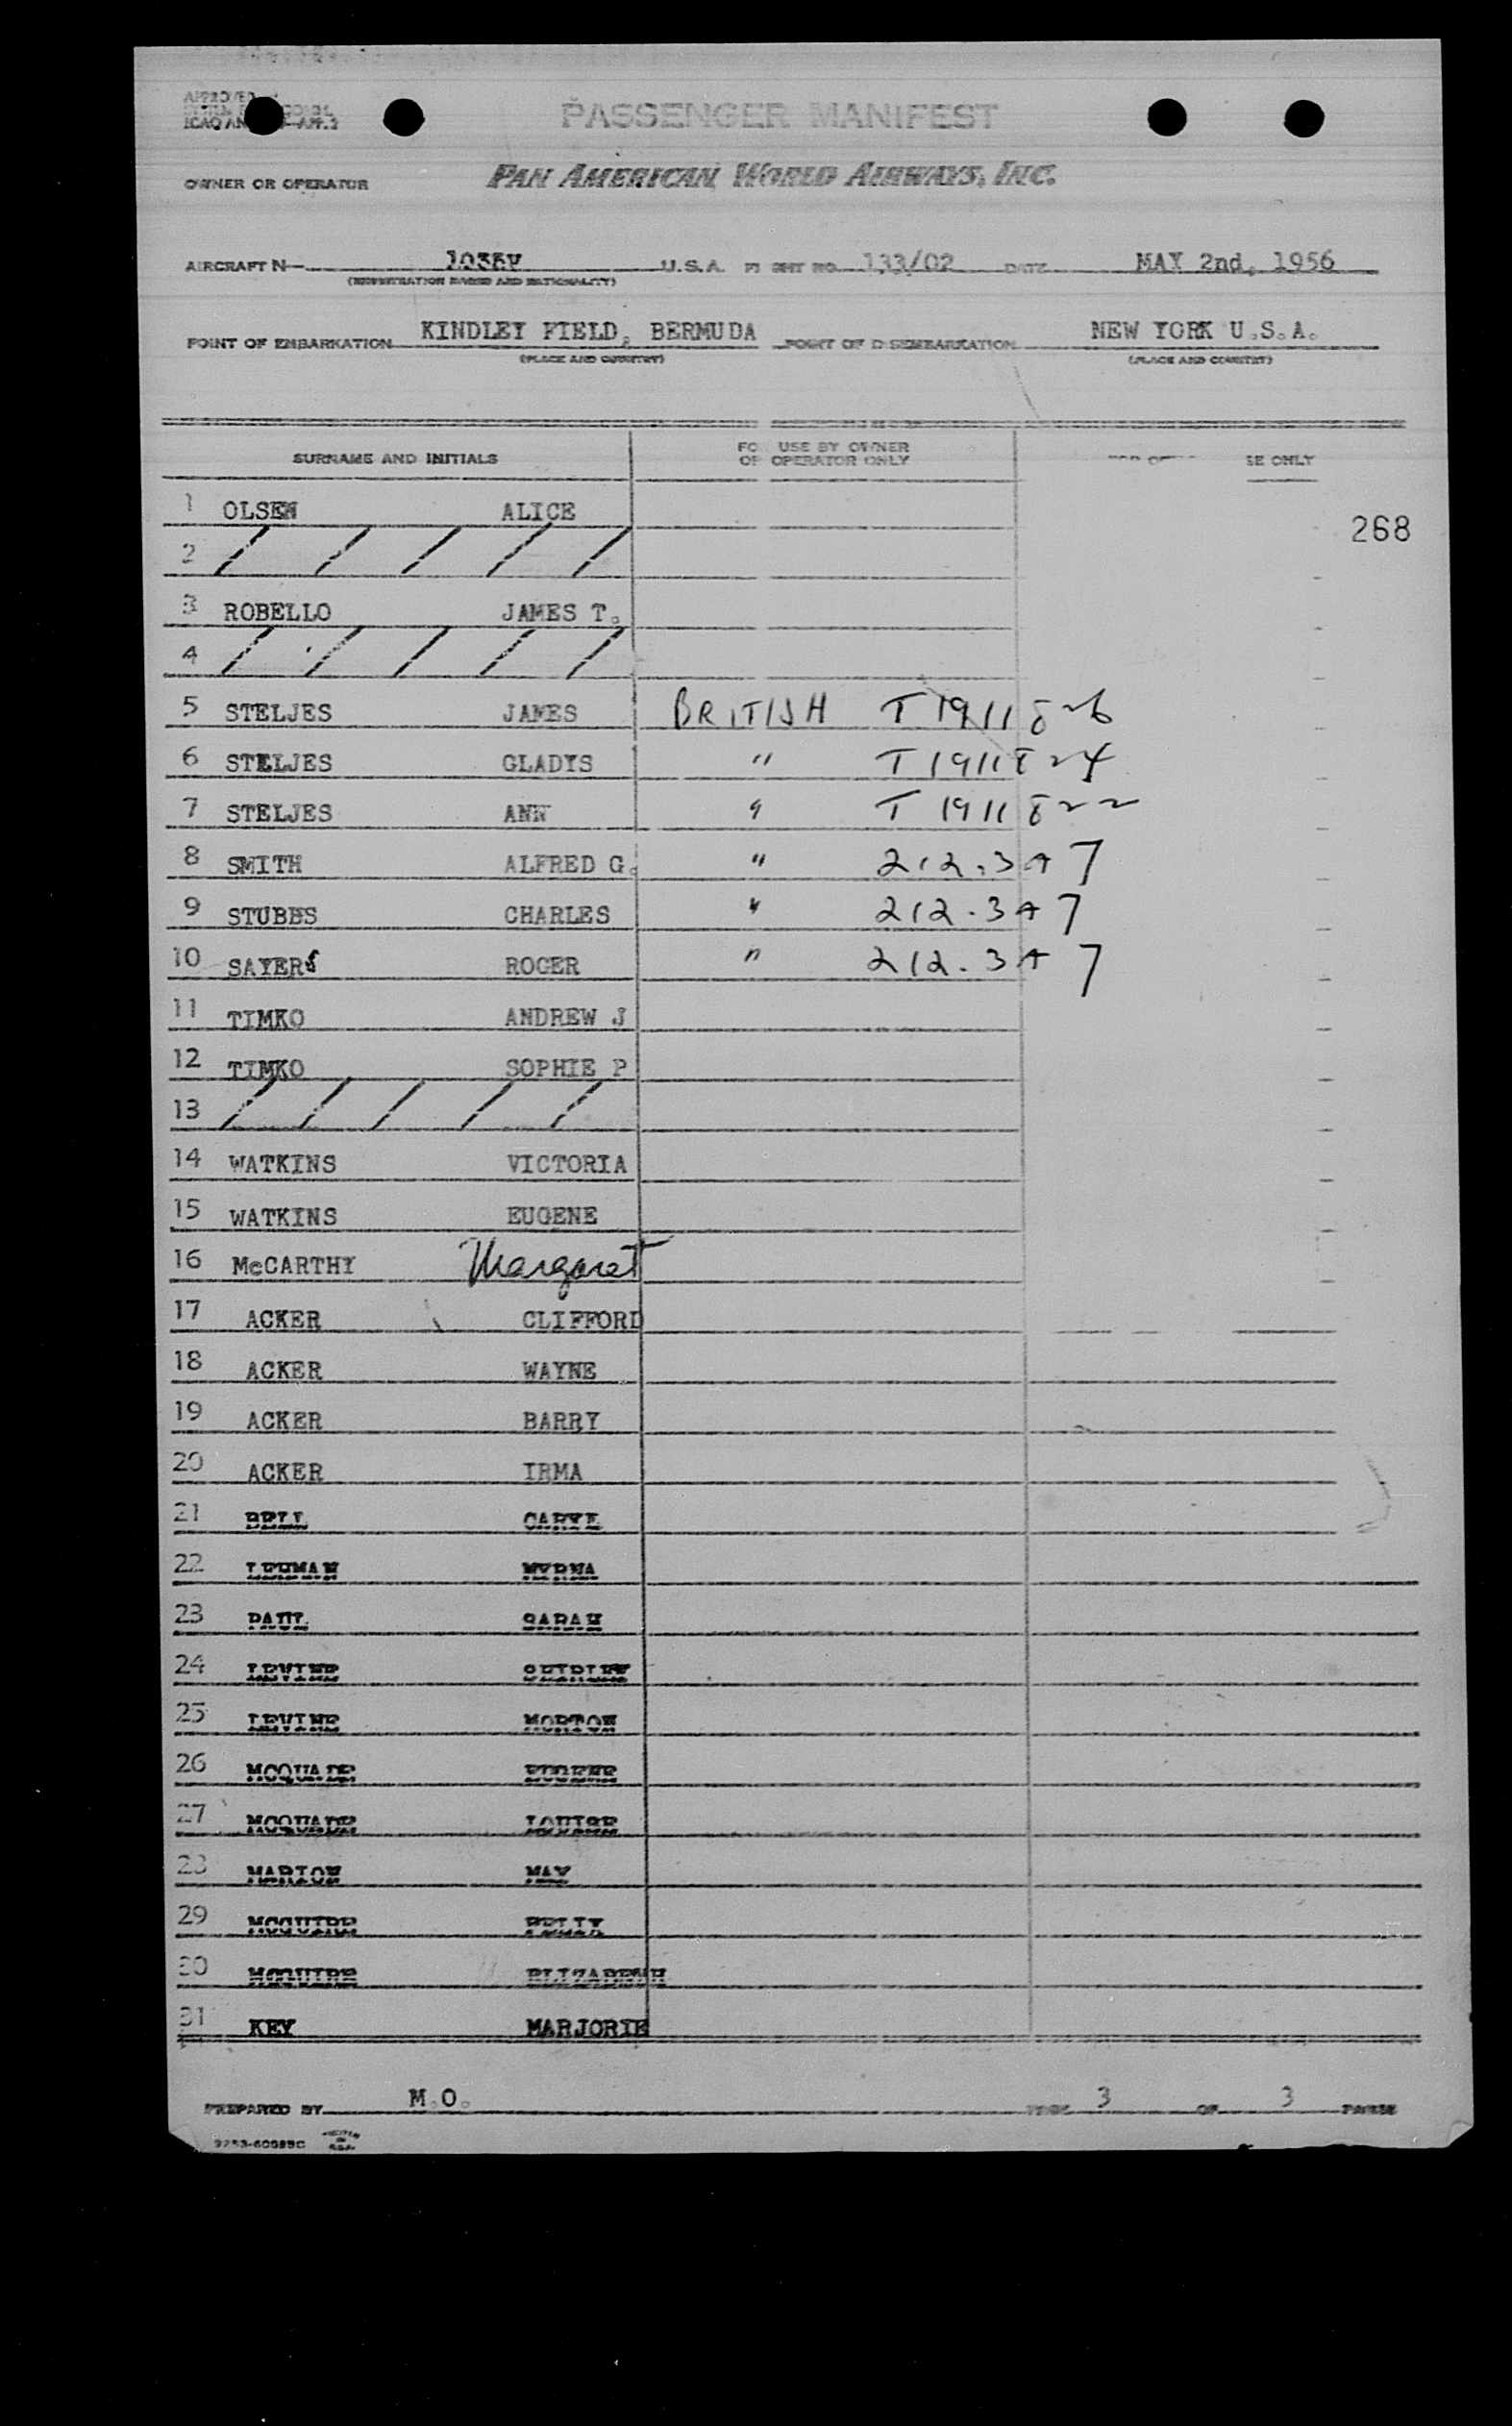 APPROVED
ICAO AN APP. 2
PASSENGER MANIFEST
OWNER OR OPERATOR PAN AMERICAN WORLD AIRWAYS, INC.
AIRCRAFT N U.S.A. FLIGHT NO. 133/02 DATE MAY 2nd, 1956
(REGISTRATION MARKS AND NATIONALITY)
POINT OF EMBARKATION KINDLEY FIELD, BERMUDA POINT OF DISEMBARKATION NEW YORK U.S.A.
(PLACE AND COUNTRY) (PLACE AND COUNTRY)
SURNAME AND INITIALS FO USE BY OWNER OR OPERATOR ONLY SE ONLY
1 OLSEN ALICE
268
2 / / / / /
3 ROBELLO JAMES T.
4 / / / / /
5 STELJES JAMES BRITISH T 1911826
6 STELJES GLADYS " T 1911824
7 STELJES ANN " T 1911822
8 SMITH ALFRED G. " 212.3 A 7
9 STUBBS CHARLES " 212.3 A 7
10 SAYERS ROGER " 212.3 A 7
11 TIMKO ANDREW J
12 TIMKO SOPHIE P
13 / / / / /
14 WATKINS VICTORIA
15 WATKINS EUGENE
16 McCARTHY Margaret
17 ACKER CLIFFORD
18 ACKER WAYNE
19 ACKER BARRY
20 ACKER IRMA
21 BELL CARYL
22 LEHMAN MYRNA
23 PAUL SARAH
24 LEVINE SHIRLEY
25 LEVINE MORTON
26 MCQUADE EUGENE
27 MCQUADE LOUISE
28 MAX
29 MCGUIRE FELIX
30 MCGUIRE ELIZABETH
31 KEY MARJORIE
PREPARED BY M.O. PAGE 3 OF 3 PAGES